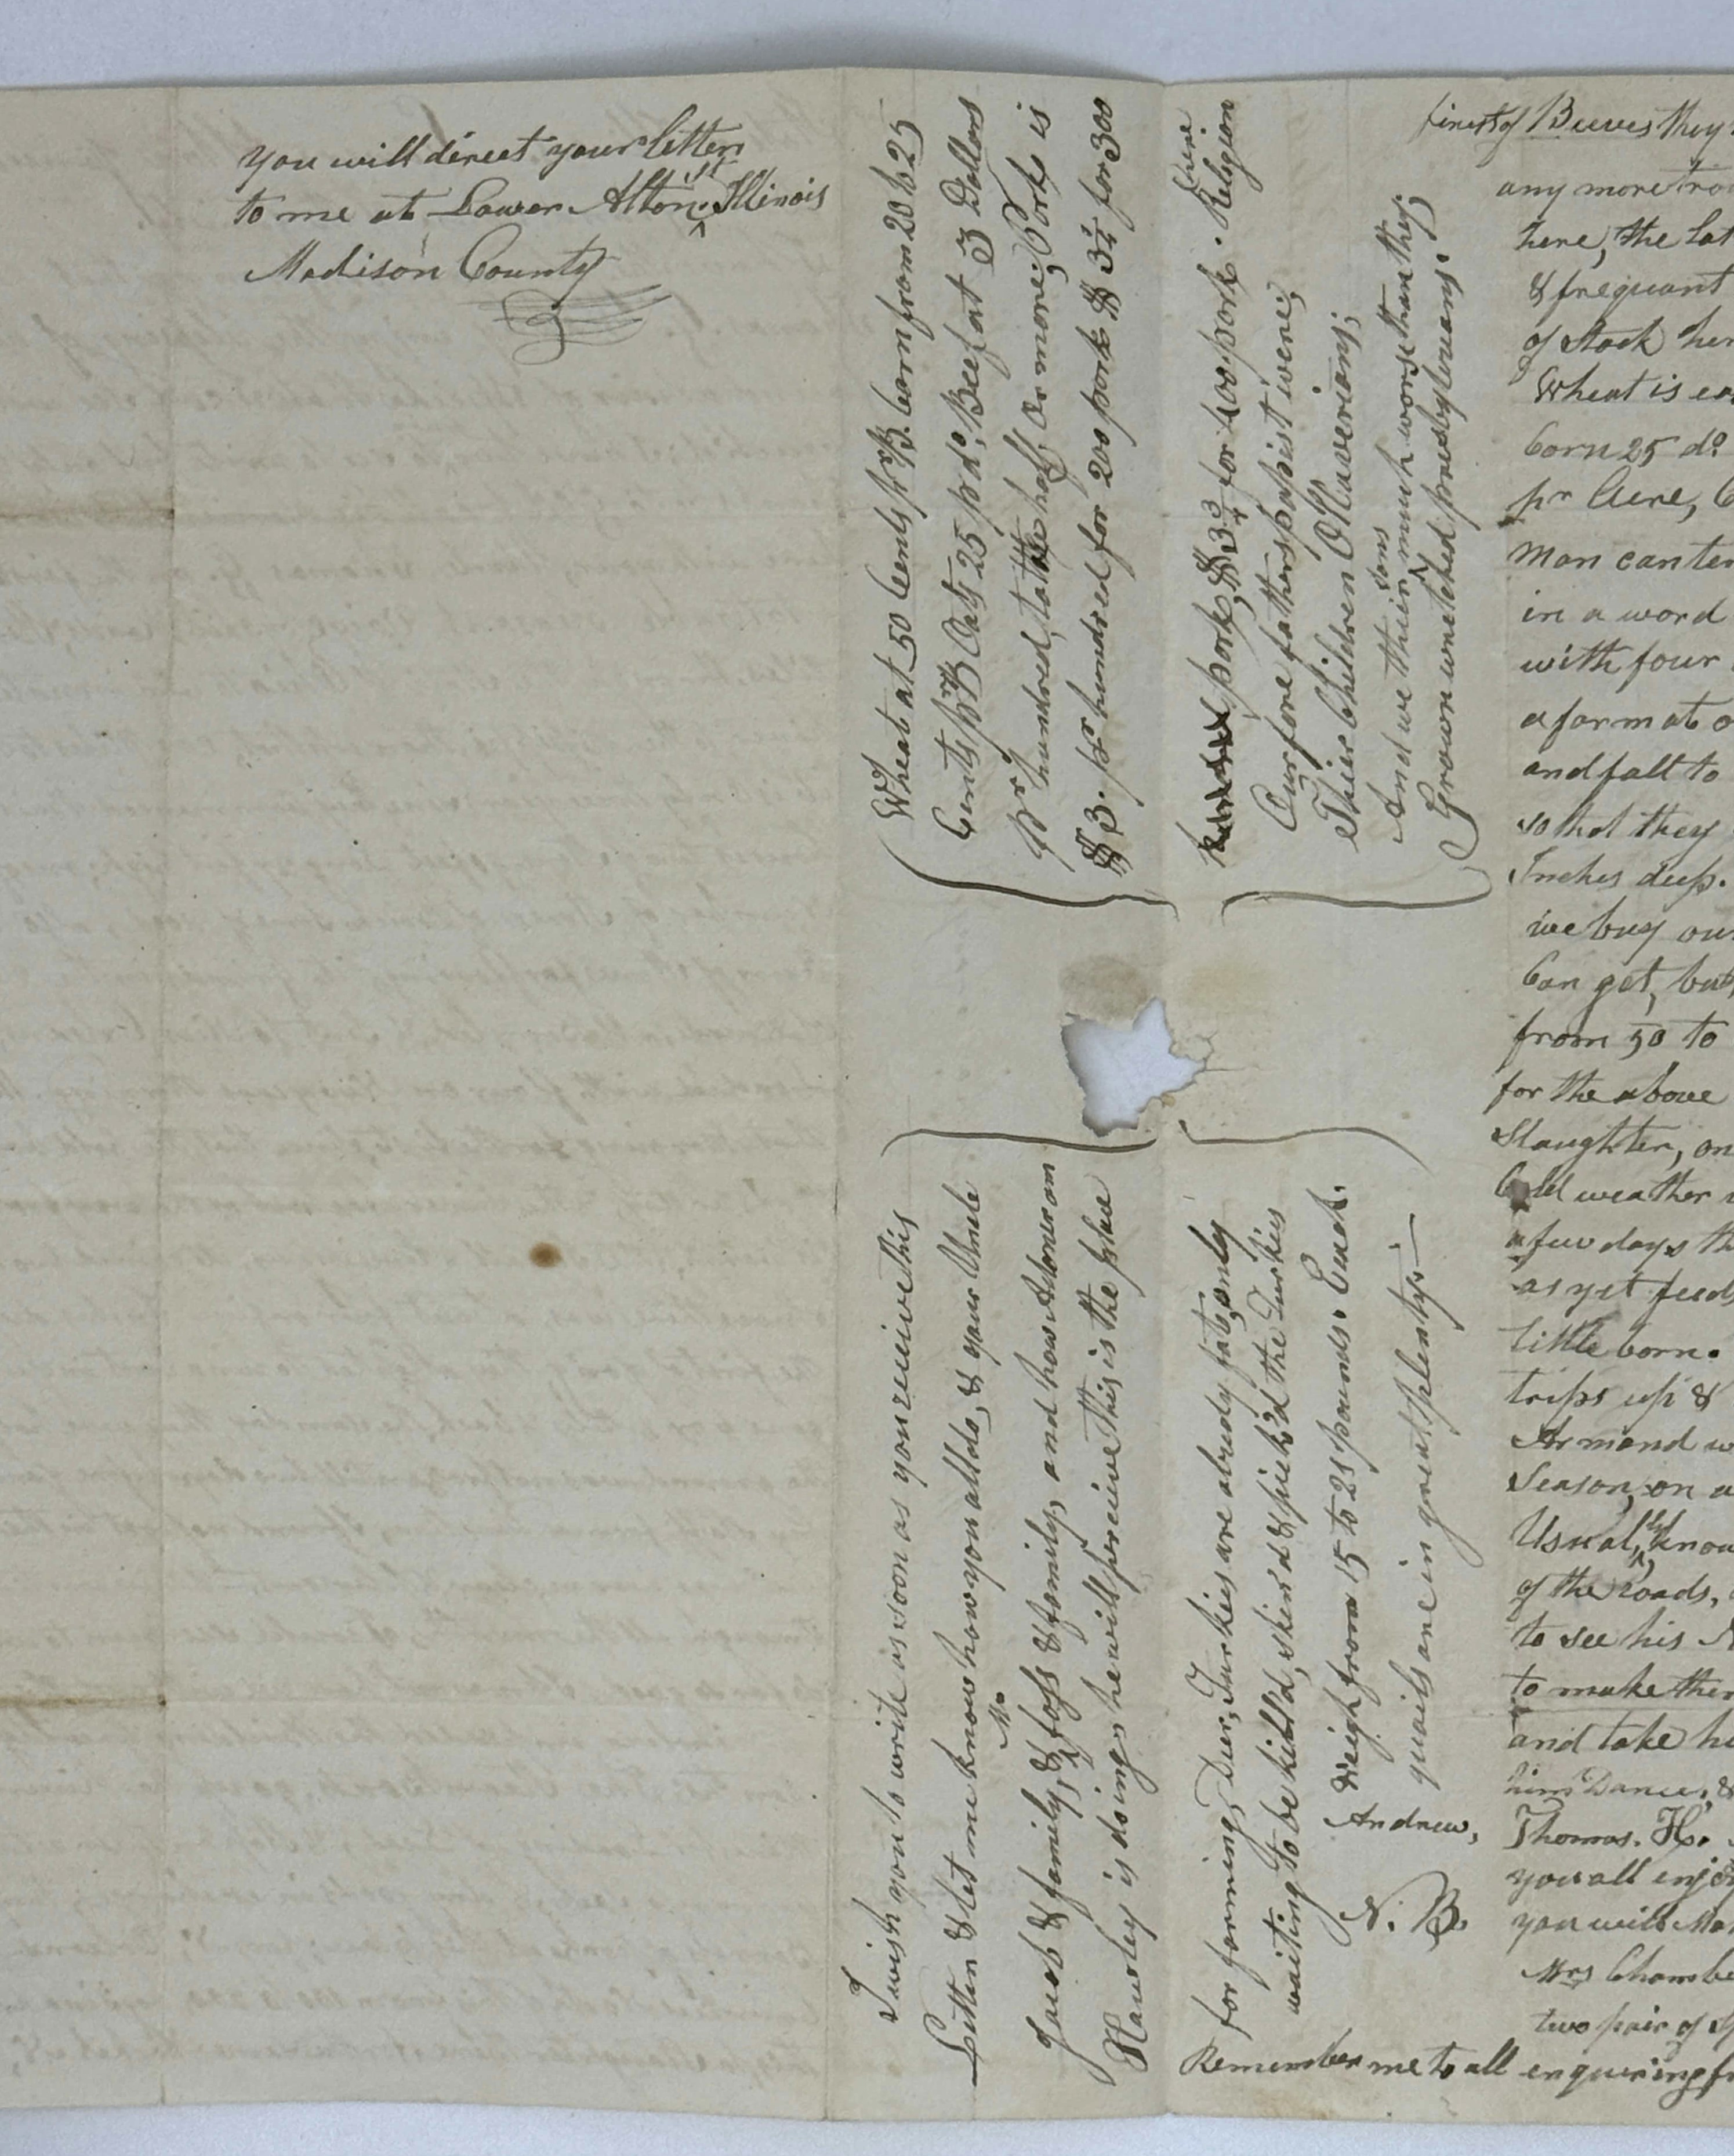 you will direct your letters
to me at Lower Alton, Illinois
Madison County
Wheat at 50 Cents pr B. Corn from 20 to 25
Cents pr B Oats 25 pr do, Beef at 3 Dollars
pr hundred, to take half, or more; Pork is
$3. pr hundred for 200 pork $ 3 1/2 for 300
pork, $3 3/4 for 400 pork. Religion here
Our fore fathers papist were;
Thier Children Oliverians;
And we their sons much worse than they;
Grown wretched presbyterians.
I wish you to write as soon as you receive this
Letter & let me know how you all do, & your Uncle
Jacob & family, & Mr foss & family, and how
Hawley is doing, he will perceive this is the place
for farming, Deer, Turkies are alrudy fat, only
waiting to be kill'd, skin'd & pick'd the Turkies
weigh from 15 to 25 pounds. Each.
quails are in great plenty.—
Andrew,
N. B.
Remember me to all enquiring fr
first of Beeves they
any more tro
here, the lat
& frequant
of Stock her
Wheat is
Corn 25 do
pr Acre,
man can
in a word
with four
a farm at
and fall to
so that they
Inches deep.
we buy our
Can get, but
from 50 to
for the above
Slaughter, on
Cold weather
a few days th
as yet feed
little Corn.
trips up &
Armand w
Season, on a
Usual, know
of the roads,
to see his
to make them
and take h
him Dance, &
Thomas. H.
you all enjo
you will
Mrs Chambe
two pair of